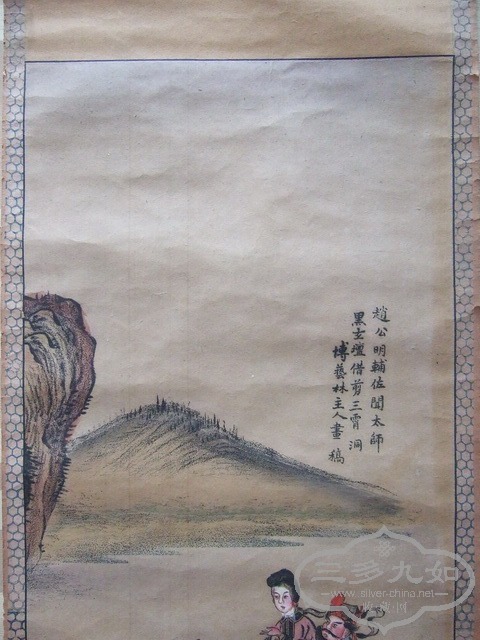 趙公明輔佐聞太師
黑玄壇借剪三霄洞
博藝林主人畫稿
三多九如
www.silver-china.net
收藏网